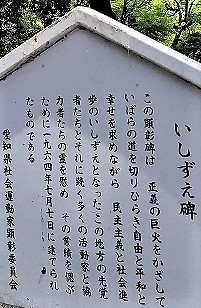 いしずえ碑
この顕彰碑は　正義の巨火をかざして
いばらの道を切りひらき自由と平和と
幸せを求めながら　民主主義と社会進
歩のいしずえとなったこの地方の先覚
者たちとそれに続く多くの活動家と協
力者たちの霊を慰め　その業績を偲ぶ
ために一九六四年七月七日に建てられ
たものである
愛知県社会運動家顕彰委員会